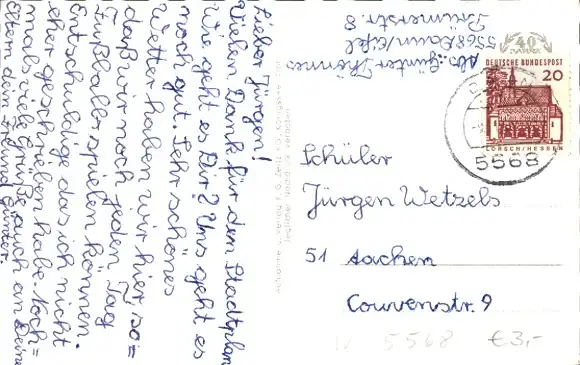 Lieber Jürgen!
Vielen Dank für den Stadtplan
Wie geht es Dir? Uns geht es
noch gut. Sehr schönes
Wetter haben wir hier, so=
daß wir noch jeden Tag
Fußball spielen können.
Entschuldige das ich nicht
eher geschrieben habe. Noch=
mals viele Grüße auch an Deine
Eltern dein Freund Günter.
Abs.: Günter
5568 Daun/Eifel
40
DEUTSCHE BUNDESPOST
20
LORSCH/HESSEN
5568
Schüler
Jürgen Wetzels
51 Aachen
Couvenstr. 9
5568 €3,-